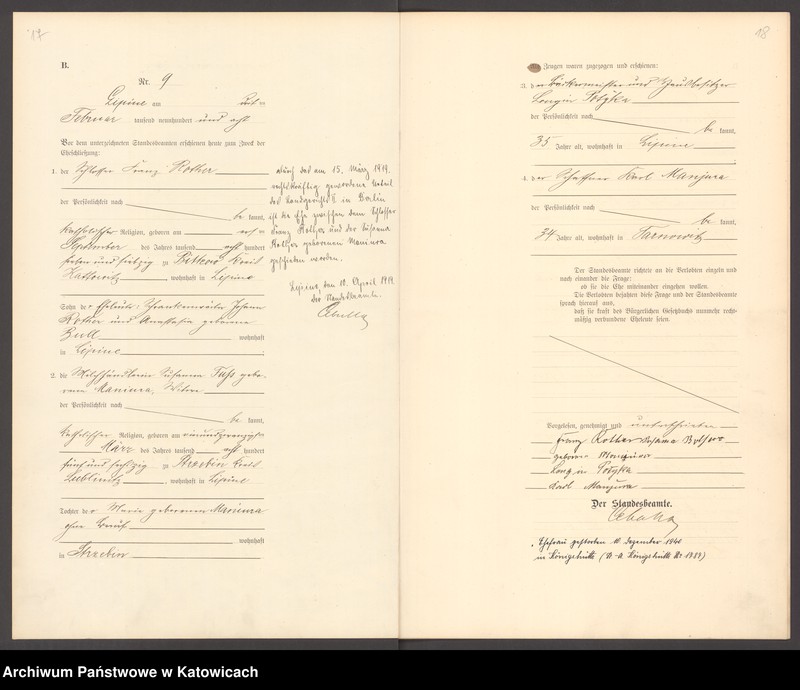 17
B.
Nr. 9
Lipine am
Februar tausend neunhundert und acht
Vor dem unterzeichneten Standesbeamten erschienen heute zum Zweck der
Eheschließung:
1. der Schlosser Franz Rother
der Persönlichkeit nach
be kannt,
katholischer Religion, geboren am
September des Jahres tausend acht hundert
sieben und siebzig zu Bittkow Kreis
Kattowitz, wohnhaft in Lipine
Sohn der Eheleute: Johann
Rother und geborene
wohnhaft
in Lipine
2. die Milchhändlerin Susanna gebo-
rene Maniura, Witwe
der Persönlichkeit nach
be kannt,
katholischer Religion, geboren am einundzwanzigsten
März des Jahres tausend acht hundert
fünf und sechzig zu Strzebin Kreis
Lublinitz, wohnhaft in Lipine
Tochter der Marie geborenen Maniura
ohne Beruf
wohnhaft
in Strzebin
Durch das am 15. März 1919
rechtskräftig gewordene Urteil
des Landgerichts in Berlin
ist die Ehe zwischen dem Schlosser
Franz Rother und der Susanna
Rother geborenen Maniura
geschieden worden.
Lipine, den 10. April 1919
Der Standesbeamte.
18
Zeugen waren zugezogen und erschienen:
3. der Bäckermeister und Hausbesitzer
Longin Potyka
der Persönlichkeit nach
be kannt,
35 Jahre alt, wohnhaft in Lipine
4. der Schaffner Karl Manjura
der Persönlichkeit nach
be kannt,
34 Jahre alt, wohnhaft in Tarnowitz
Der Standesbeamte richtete an die Verlobten einzeln und
nach einander die Frage:
ob sie die Ehe miteinander eingehen wollen.
Die Verlobten bejahten diese Frage und der Standesbeamte
sprach hierauf aus,
daß sie kraft des Bürgerlichen Gesetzbuchs nunmehr recht-
mäßig verbundene Eheleute seien.
Vorgelesen, genehmigt und unterschrieben
Franz Rother
geborene
Longin Potyka
Karl Manjura
Der Standesbeamte.
Ehefrau gestorben 10. Dezember 1940
in Königshütte (St. A. Königshütte Nr. 1989)
Archiwum Państwowe w Katowicach